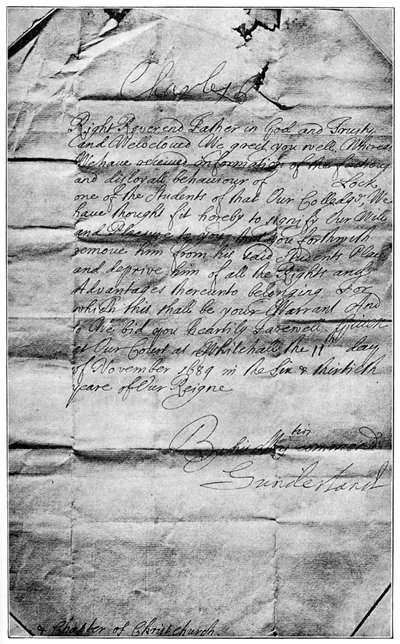 Charles R
Right Reverend Father in God and Trusty
and Welbeloved We greet you well. Whereas
We have received Information of the factious
and disloyall behaviour of Lock
one of the Students of that Our Colledge. We
have thought fit hereby to signify Our Will
and Pleasure to you, that you forthwith
remove him from his said Students Place
and deprive him of all the Rights and
Advantages thereunto belonging For
which this shall be your Warrant And
so We bid you heartily Farewell. Given
at Our Court at Whitehall the 11th day
of November 1684 in the Six & thirtieth
yeare of Our Reigne
By his Maties command
Sunderland
& Chapter of Christchurch.